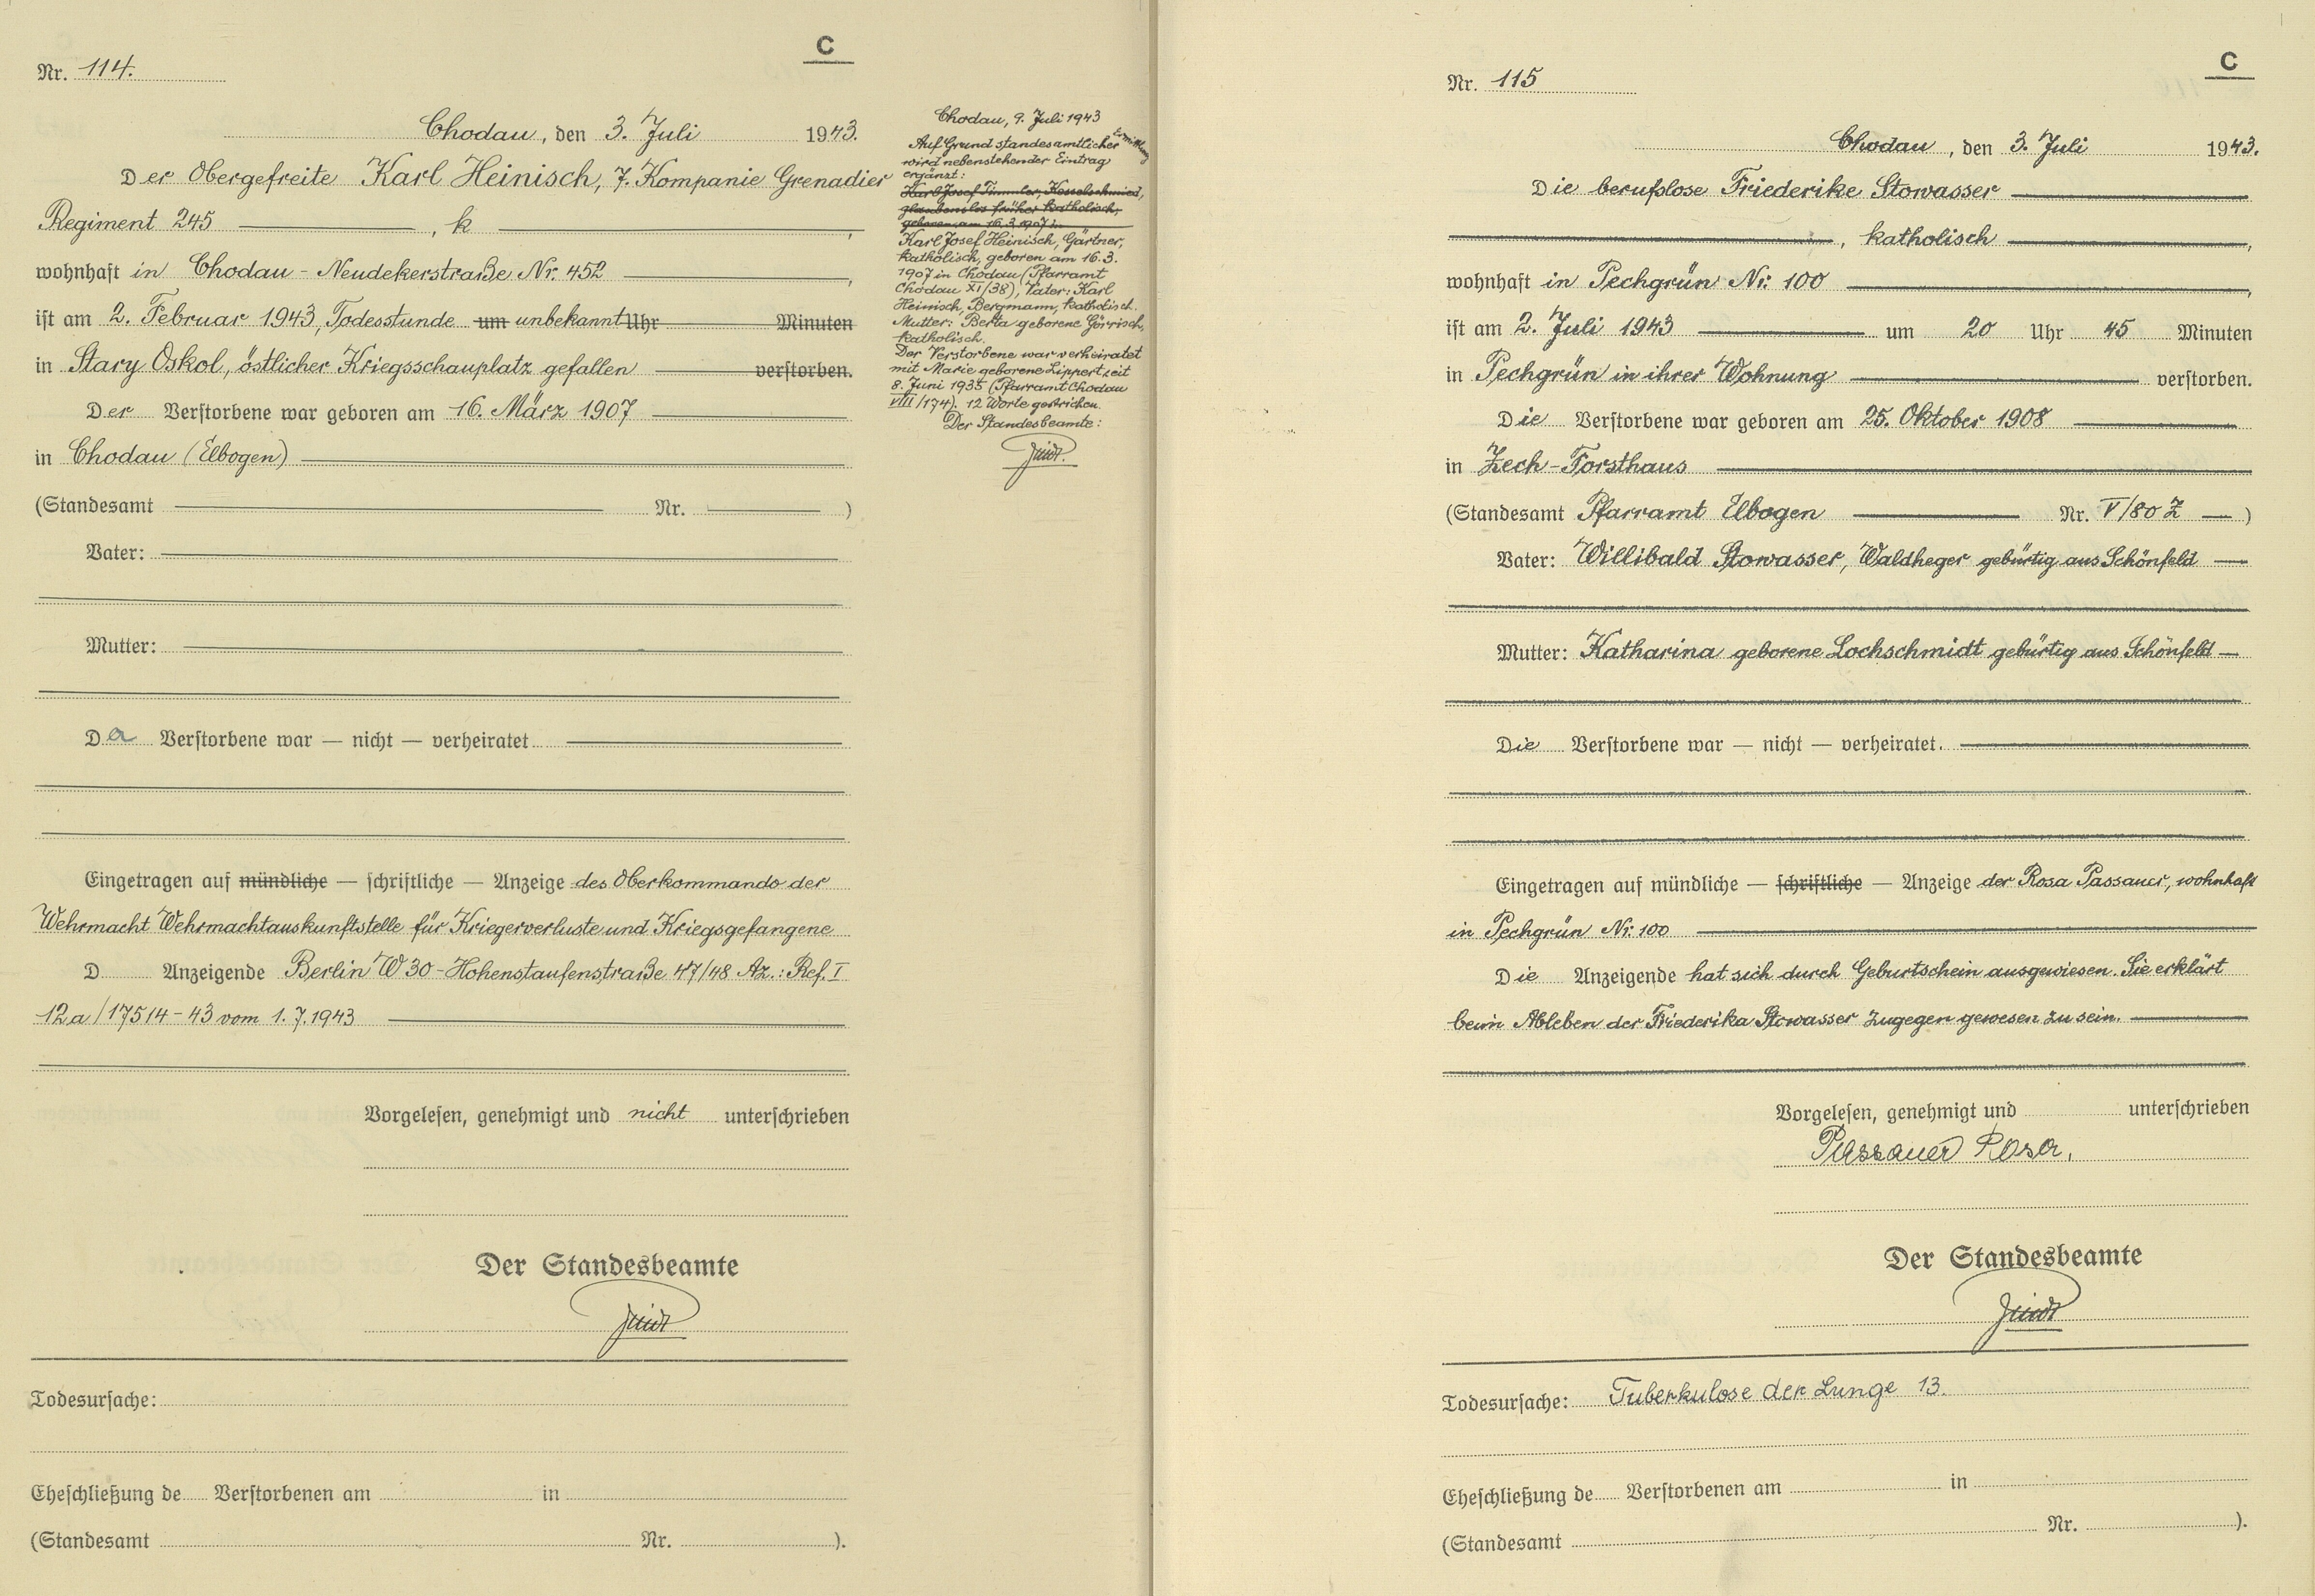 C
Nr. 114.
Chodau, den 3. Juli 1943.
Der Obergefreite Karl Heinisch, 7. Kompanie Grenadier
Regiment 245 , k ,
wohnhaft in Chodau - Neudekerstraße Nr. 452 ,
ist am 2. Februar 1943, Todesstunde um unbekannt Uhr Minuten
in Stary Oskol, östlicher Kriegsschauplatz gefallen verstorben.
Der Verstorbene war geboren am 16. März 1907
in Chodau (Elbogen)
(Standesamt Nr. )
Vater:
Mutter:
Der Verstorbene war — nicht — verheiratet
Eingetragen auf mündliche — schriftliche — Anzeige des Oberkommando der
Wehrmacht Wehrmachtauskunftstelle für Kriegerverluste und Kriegsgefangene
D Anzeigende Berlin W 30 - Hohenstaufenstraße 47/48 Az.: Ref. I
12a/17514 - 43 vom 1.7.1943
Vorgelesen, genehmigt und nicht unterschrieben
Der Standesbeamte
Todesursache:
Eheschließung de Verstorbenen am in
(Standesamt Nr. ).
Chodau, 9. Juli 1943
Auf Grund standesamtlicher Ermittlung
wird nebenstehender Eintrag
ergänzt:
Karl Josef Tümmler, Kesselschmied,
glaubenslos früher katholisch,
geboren am 16.3.1907 in
Karl Josef Heinisch, Gärtner,
katholisch, geboren am 16.3.
1907 in Chodau (Pfarramt
Chodau XI/38), Vater: Karl
Heinisch, Bergmann, katholisch.
Mutter: Berta geborene Görrisch,
katholisch.
Der Verstorbene war verheiratet
mit Marie geborene Lippert seit
8. Juni 1935 (Pfarramt Chodau
VIII/174). 12 Worte gestrichen.
Der Standesbeamte:
C
Nr. 115
Chodau, den 3. Juli 1943.
Die berufslose Friederike Stowasser
, katholisch ,
wohnhaft in Pechgrün Nr. 100 ,
ist am 2. Juli 1943 um 20 Uhr 45 Minuten
in Pechgrün in ihrer Wohnung verstorben.
Die Verstorbene war geboren am 25. Oktober 1908
in Zech-Forsthaus
(Standesamt Pfarramt Elbogen Nr. V/80 Z )
Vater: Willibald Stowasser, Waldheger gebürtig aus Schönfeld
Mutter: Katharina geborene Lochschmidt gebürtig aus Schönfeld
Die Verstorbene war — nicht — verheiratet.
Eingetragen auf mündliche — schriftliche — Anzeige der Rosa Passauer, wohnhaft
in Pechgrün Nr. 100
Die Anzeigende hat sich durch Geburtschein ausgewiesen. Sie erklärt
beim Ableben der Friederika Stowasser zugegen gewesen zu sein.
Vorgelesen, genehmigt und unterschrieben
Passauer Rosa.
Der Standesbeamte
Todesursache: Tuberkulose der Lunge 13.
Eheschließung de Verstorbenen am in
(Standesamt Nr. ).